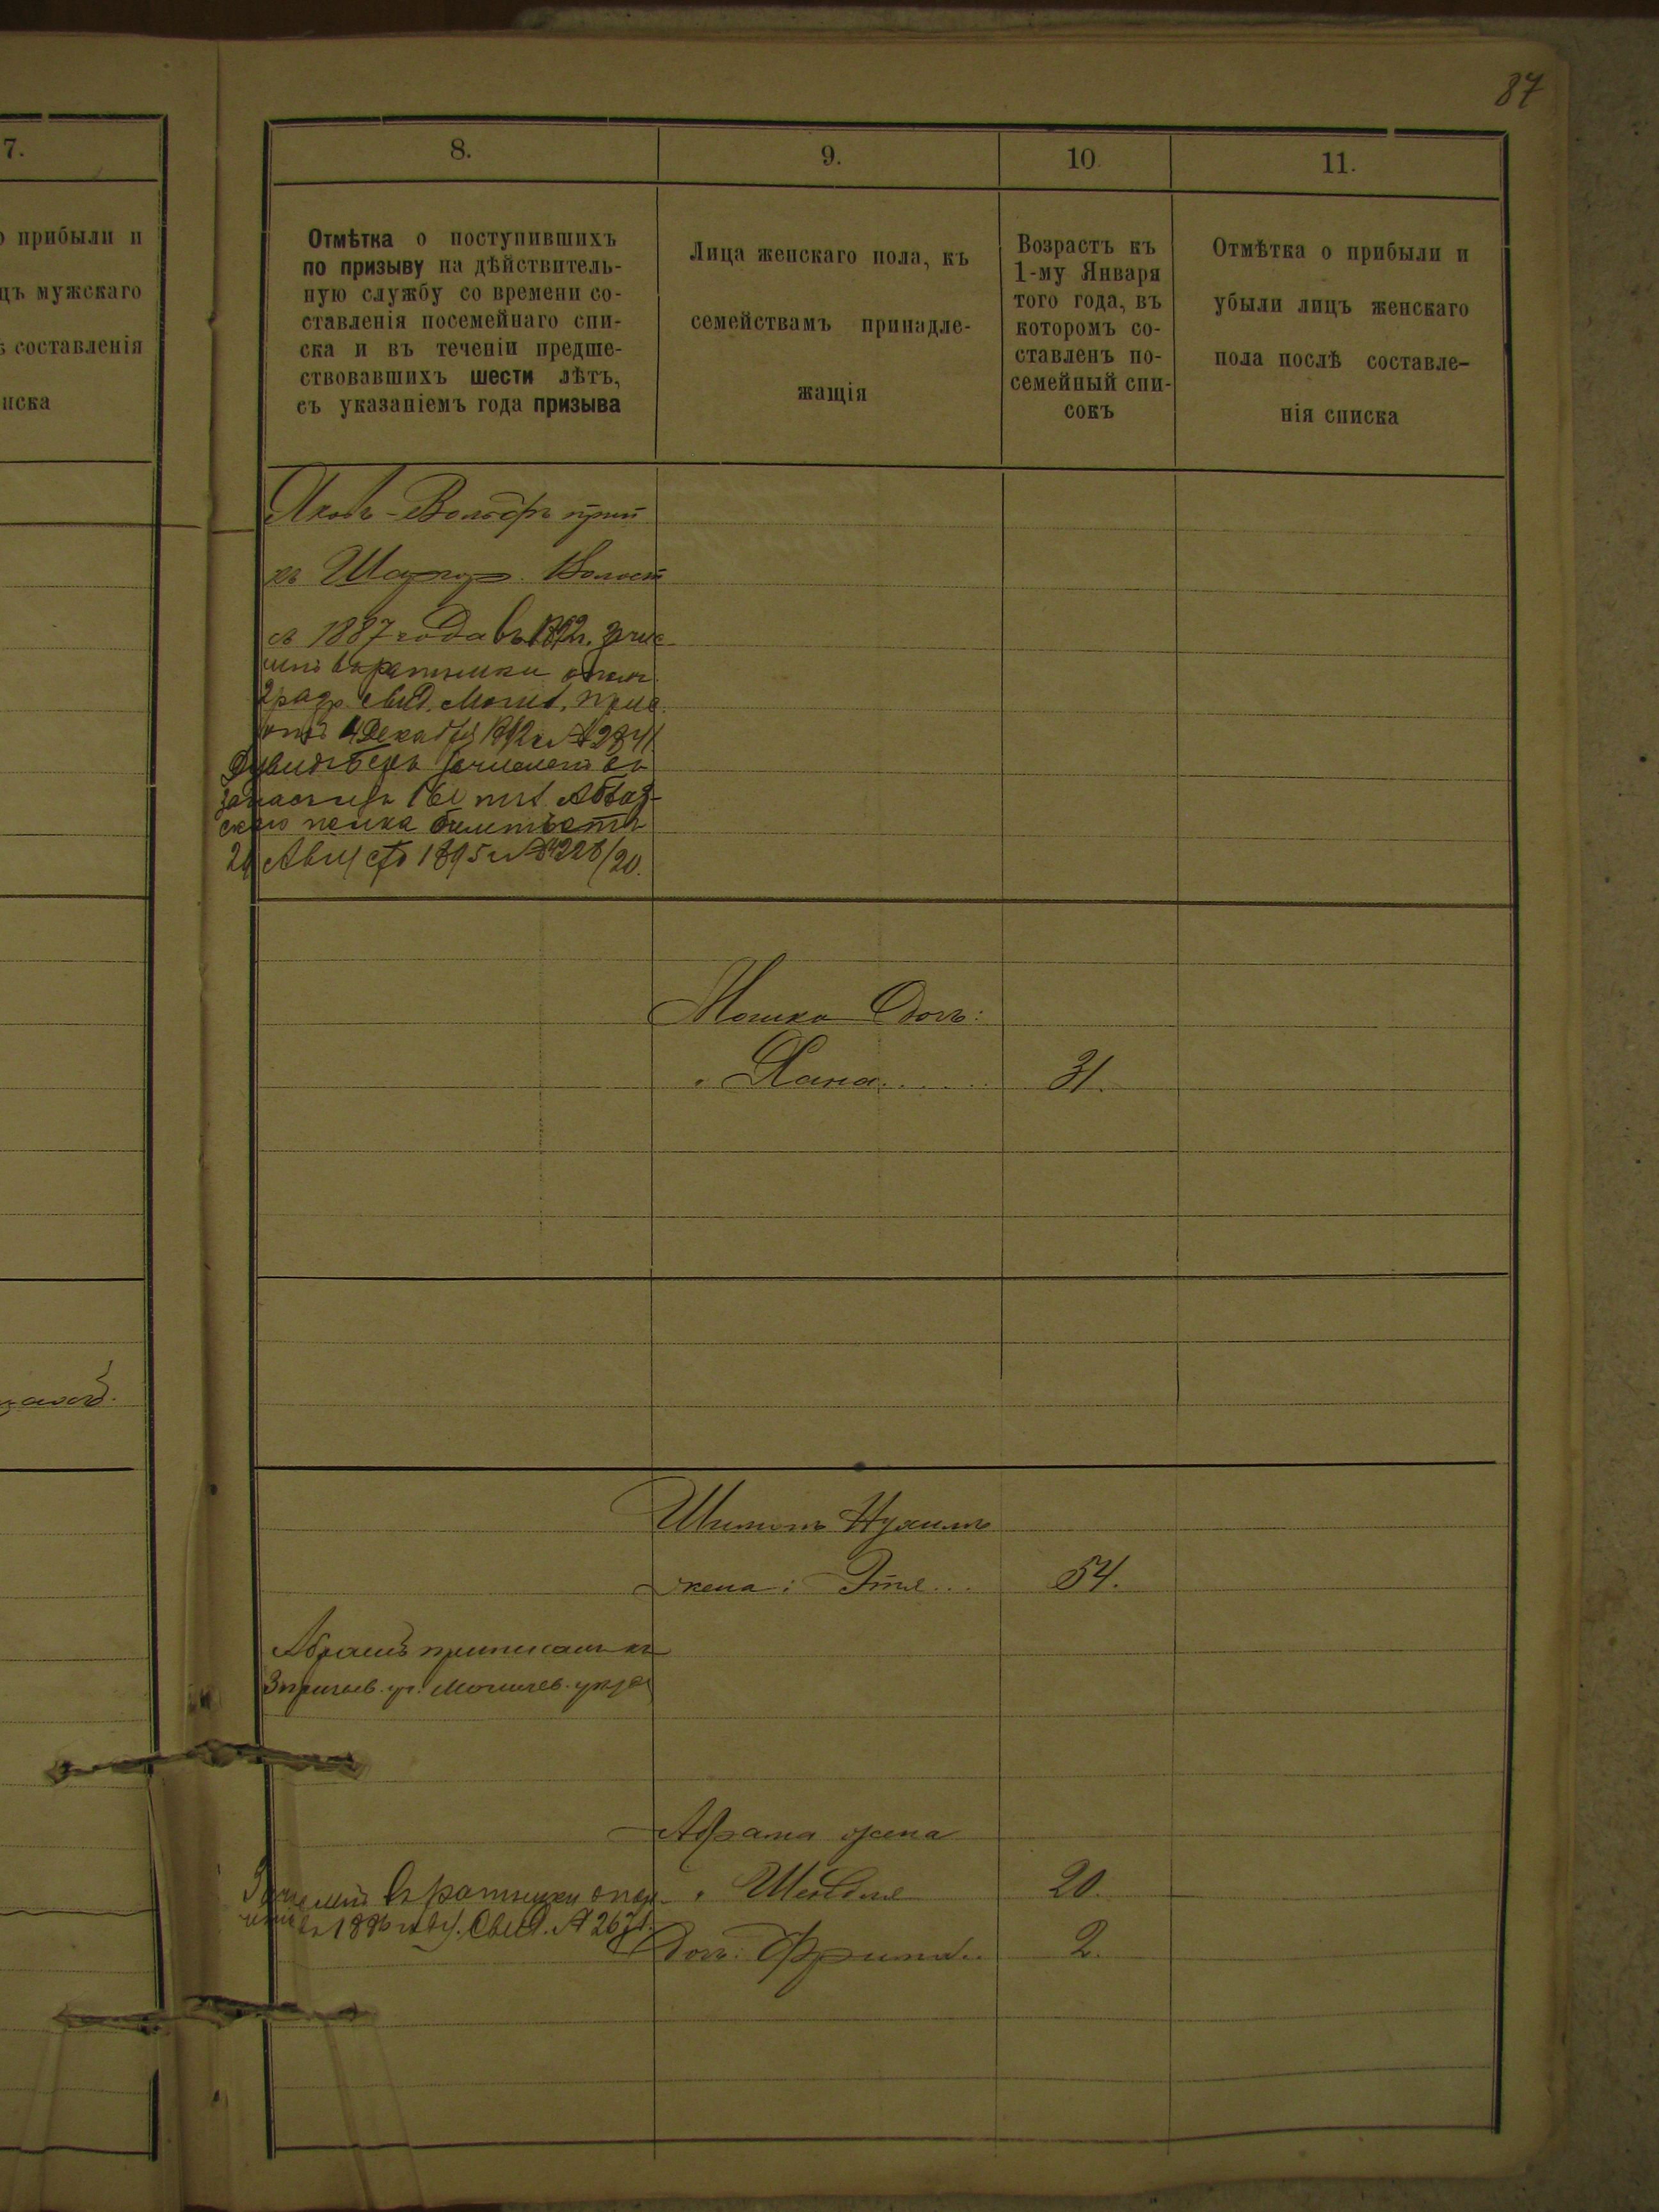 87
7.
о прибыли и
цъ мужскаго
ѣ составленія
иска
8.
Отмѣтка о поступившихъ
по призыву на дѣйствитель-
ную службу со времени со-
ставленія посемейнаго спи-
ска и въ теченіи предше-
ствовавшихъ шести лѣтъ,
съ указаніемъ года призыва
9.
Лица женскаго пола, къ
семействамъ принадле-
жащія
10
Возрастъ къ
1-му Января
того года, въ
которомъ со-
ставленъ по-
семейный спи-
сокъ
11.
Отмѣтка о прибыли и
убыли лицъ женскаго
пола послѣ составле-
нія списка
Яковъ-Вольфъ
къ Шаргор. Волост
съ 1887 года въ 1892 г. зачис
въ ратники
2 разр. свид. Могил.
4 Декабря 1892 г. №2841
зачисленъ въ
полка билетъ отъ
29 Августа 1895 г. №4228/20.
Мошка дочь:
Хана 31.
Шимонъ Нухимъ
жена: Этя 54.
Абрамъ приписанъ къ
3 призыв. уч. Могилев. уезда
Абрама жена
Шейдля 20.
въ ратники опол
Свид. № 2671.
Дочь: Фрима 2.